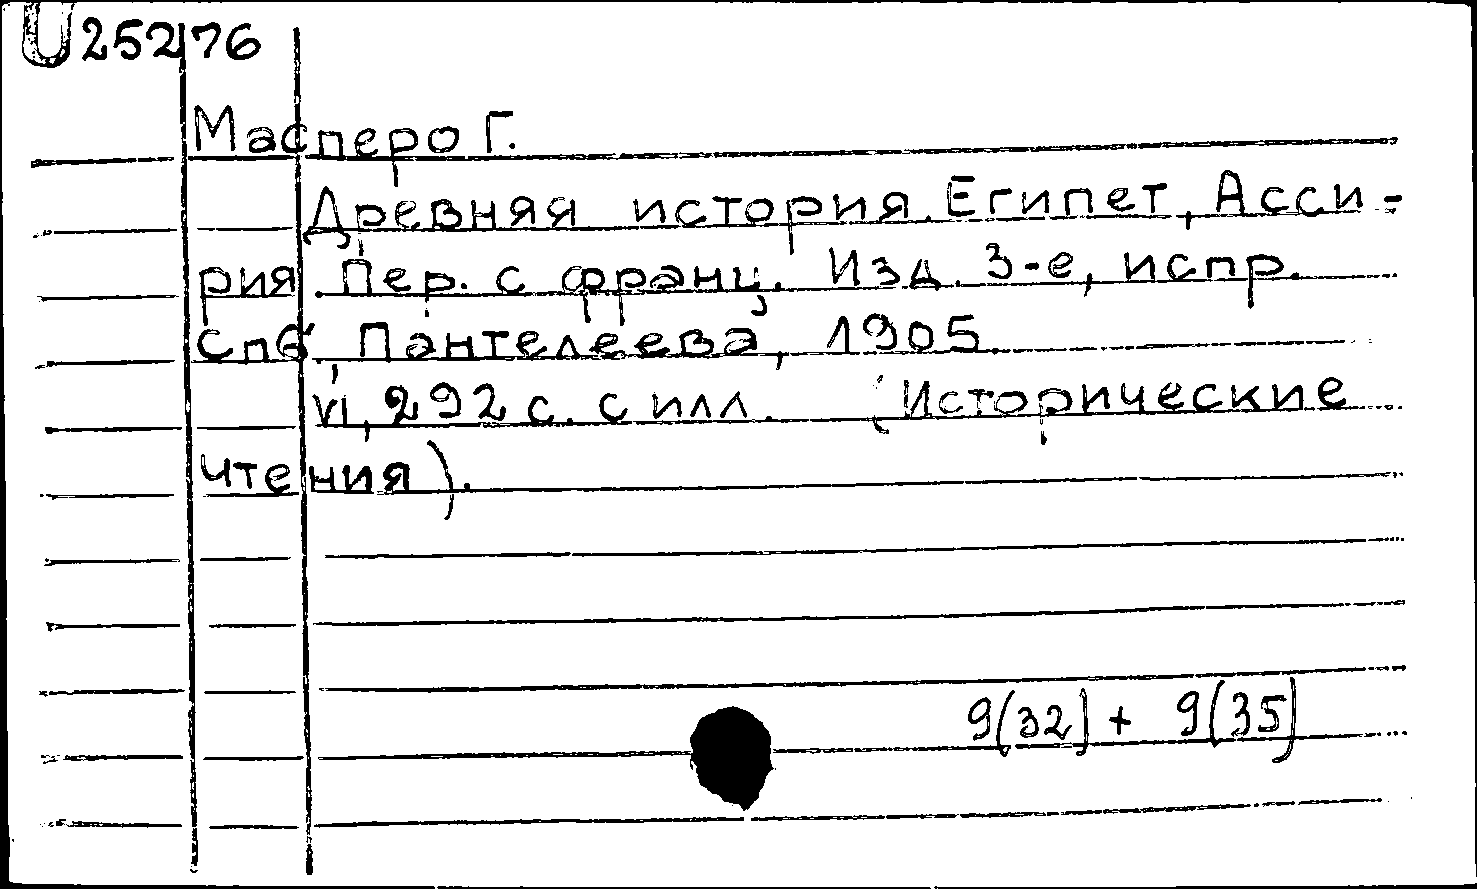 U252176
Масперо Г.
Древняя история. Египет, Асси-
рия. Пер. с франц. Изд. 3-е, испр.
Спб, Пантелеева, 1905.
VI, 292 с. с илл. (Исторические
чтения).
9(32) + 9(35)